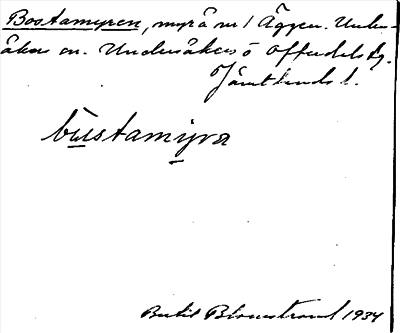 Bostamyren, myr å nr 1 Äggen. Under-
åkers sn. Undersåkers o Offerdals tg.
Jämtlands l.
bustamyra
Bertil Blomstrand 1934